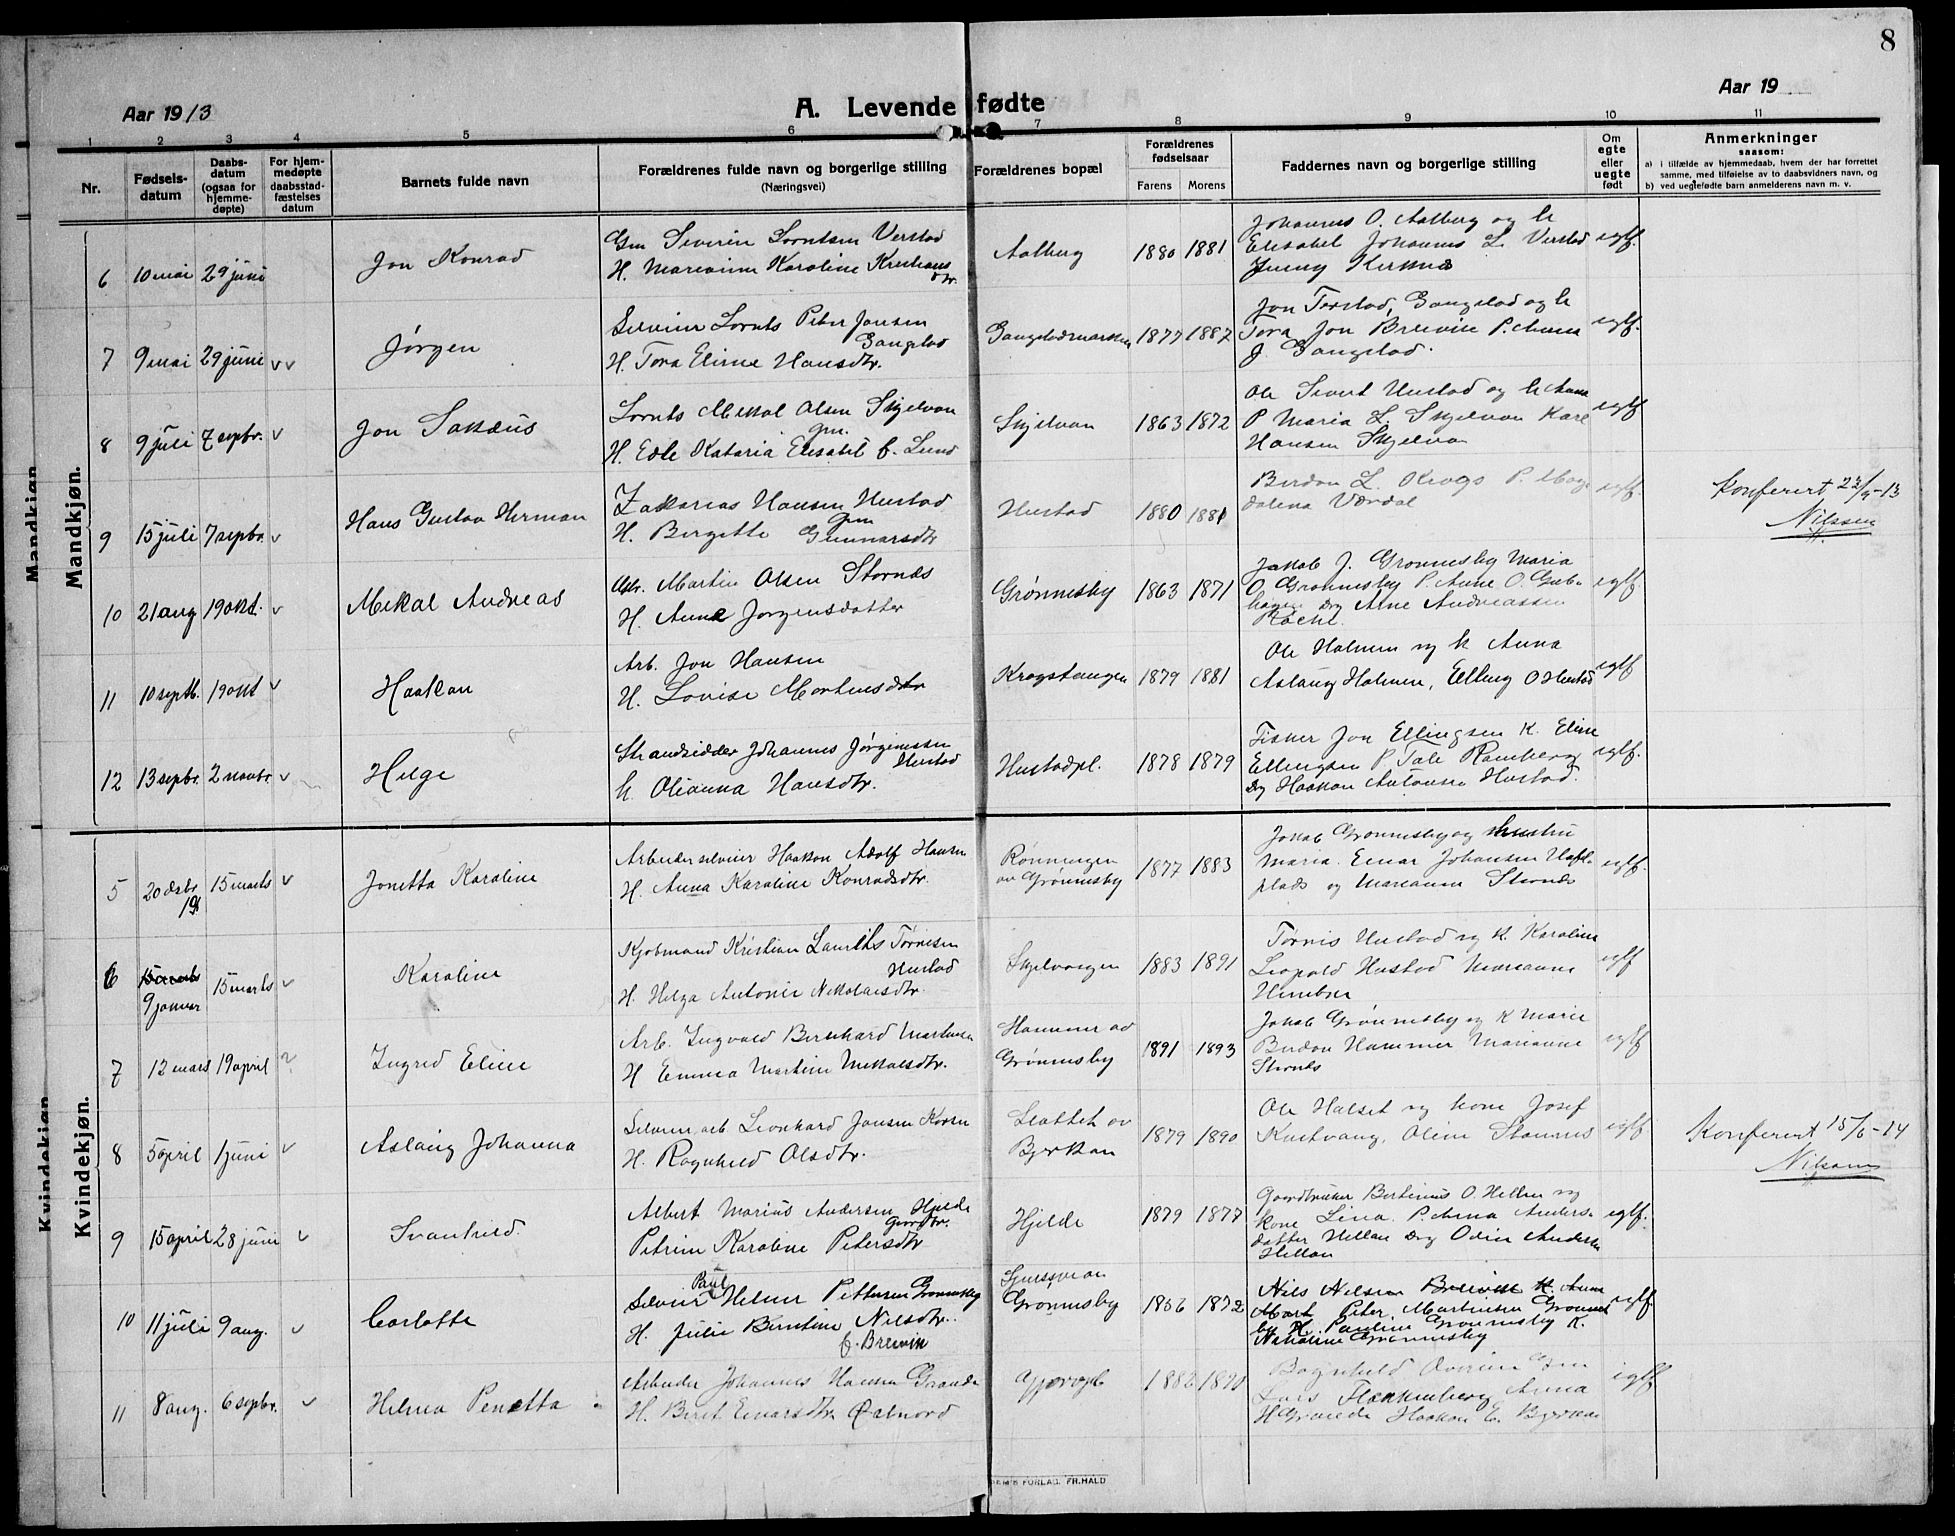 8
Aar 1913
A. Levende fødte
Aar 19
1 2 3 4 5 6 7 8 9 10 11
Nr.
Fødsels-
datum
Daabs-
datum
(ogsaa for
hjemme-
døpte)
For hjem-
medøpte
daabsstad-
fæstelses
datum
Barnets fulde navn
Forældrenes fulde navn og borgerlige stilling
(Næringsvei)
Forældrenes bopæl
Forældrenes
fødselsaar
Farens Morens
Faddernes navn og borgerlige stilling
Om
egte
eller
uegte
født
Anmerkninger
saasom:
a) i tilfælde av hjemmedaab, hvem der har forrettet
samme, med tilføielse av to daabsvidners navn, og
b) ved uegtefødte barn anmelderens navn m. v.
Mandkjøn.
Mandkjøn
6 10 mai 29 juni Jon Konrad
Gm Severin Lorntsen Verstad
H. Marianne Karoline Kristians
dtr.
Aalberg 1880 1881
Johannes O. Aalberg og h
Elisabet Johannes L. Verstad
Jenny Kirknes
egtf.
7 9 mai 29 juni v v Jørgen
Selveier Lornts Peter Jonsen
Gangstad
H. Tora Eline Hansdtr.
Gangstadmarken 1877 1887
Jon Forstad, Gangstad og h
Tora Jon Breivik P. Anna
J. Gangstad.
egtf.
8 9 juli 7 septbr. v Jon Sakæus
Lornts Mekal Olsen Skjelvan
Gm.
H. Edle Kataria Elisabet f. Lund
Skjelvan 1863 1872
Ole Sivert Hustad og h Anna
P Maria L. Skjelvan Karl
Hansen Skjelvan
egtf
9 15 juli 7 septbr. v Hans Gustav Herman
Zakarias Hansen Hustad
Gm
H. Bergitte Gunnarsdtr
Hustad 1880 1881
Berdon L. Krogs P. Mag
dalena Værdal
egtf.
Konferert 23/9-13
Nilssen
10 21 aug 19 okt. v Mekal Andreas
Martin Olsen Stornes
H. Anne Jørgensdatter
Grønnesby 1863 1871
Jakob J. Grønnesby Maria
O. Grønnesby P. Anne O. Grub-
hagen Arne Andreassen
egtf.
11 10 septb. 19 okt v Haakon
Arb. Jon Hansen
H. Lovise Mortensdtr
Krogstangen 1879 1881
Ole Holmen og k Anna
Aslaug Holmen, Elling O Hustad
egtf
12 13 septbr. 2 novbr. v Helge
Strandsidder Johannes Jørgenssen
Hustad
h. Olianna Hansdtr.
Hustadpl. 1878 1879
Fisker Jon Ellingsen K. Eline
Ellingsen P Tale Ramberg
Haakon Antonsen Hustad.
egtf.
Kvindekjøn.
Kvindekjøn
5 20 desbr. 15 marts v Jonetta Karoline
Arbeider selveier Haakon Adolf Hansen
H. Anna Karoline Konradsdtr.
Rønningen
av Grønnesby 1877 1883
Jakob Grønnesby og hustru
Maria. Einar Johansen
plads og Marianne Stornes
egtf.
6 15 marts
9 januar 15 marts v Karoline
Kjøbmand Kristian Laurits Tørnisen
Hustad
H. Helga Antonie Nikolaisdtr.
Skjelvangen 1883 1891
Tørnis Hustad og K. Karoline
Leopold Hustad Marianne
egtf
7 12 mars 19 april ? Ingrid Eline
Arb. Ingvald Bernhard Martinsen
H Emma Martine Mekalsdtr.
Hammer av
Grønnesby 1891 1893
Jakob Grønnesby og K Marie
Berdon Hammer Marianne
Stornes
egtf
8 5 april 1 juni v Aslaug Johanna
Selveier arb Leonhard Jonsen
H. Ragnhild Olsdtr.
Slottet av
Bjerkan 1879 1890
Ole Halset og kone Josef
Kustvang, Oline Stamnes
egtf
Konferert 15/6-14
Nilssen
9 15 april 28 juni v Svanhild.
Albert Marius Andersen Hjelde
Gaardbr.
Petrine Karoline Petersdtr
Hjelde 1879 1877
Gaardbruker Bertinius O. Hellan og
kone Lina. P. Anna Anders-
datter Hellan Odin Anders
Hellan
egtf.
10 11 juli 9 aug. v Carlotte
Paul
Selveier Helmer Pettersen Grønnesby
H. Julie Berntine Nilsdtr.
f. Breivik
Grønnesby 1866 1872
Nils Nilsen Breivik K. Anna
Mart Peter Martinsen Grønnes
by H. Pauline Grønnesby K.
Nikoline Grønnesby
egtf.
11 8 aug. 6 septbr. v Helma Penetta
Arbeider Johannes Hansen Grande
H. Beret Einarsdtr
1882 1890
Lars Flakkenberg Anna
H Grande Haakon E. Bjerkan
egtf.
FORLAG. FR. HALD